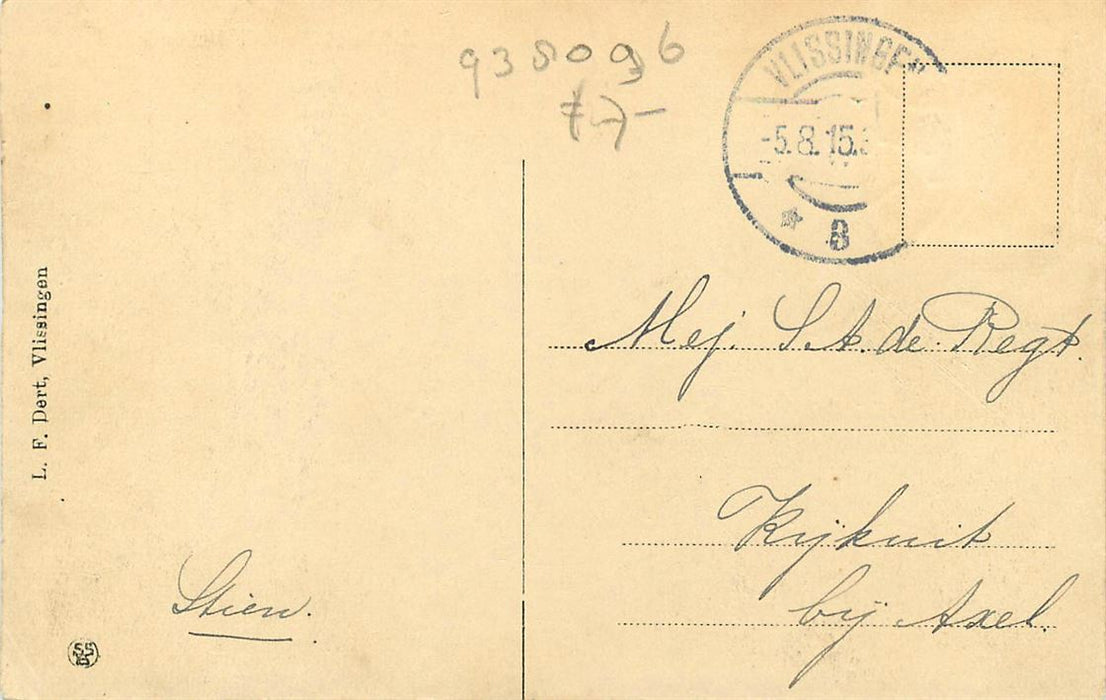 938096
VLISSINGEN
-5.8.15.
8
L. F. Dert, Vlissingen
Mej. S. A. de Regt.
Kijkuit
bij Axel.
Stien.
SS